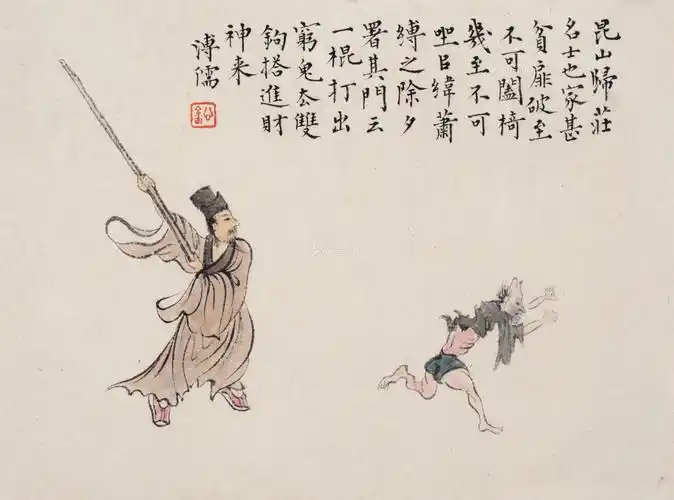 昆山歸莊
名士也家甚
貧扉破至
不可闔椅
幾至不可
坐㠯緯蕭
縛之除夕
署其門云
一棍打出
窮鬼厺雙
鉤搭進財
神来
溥儒